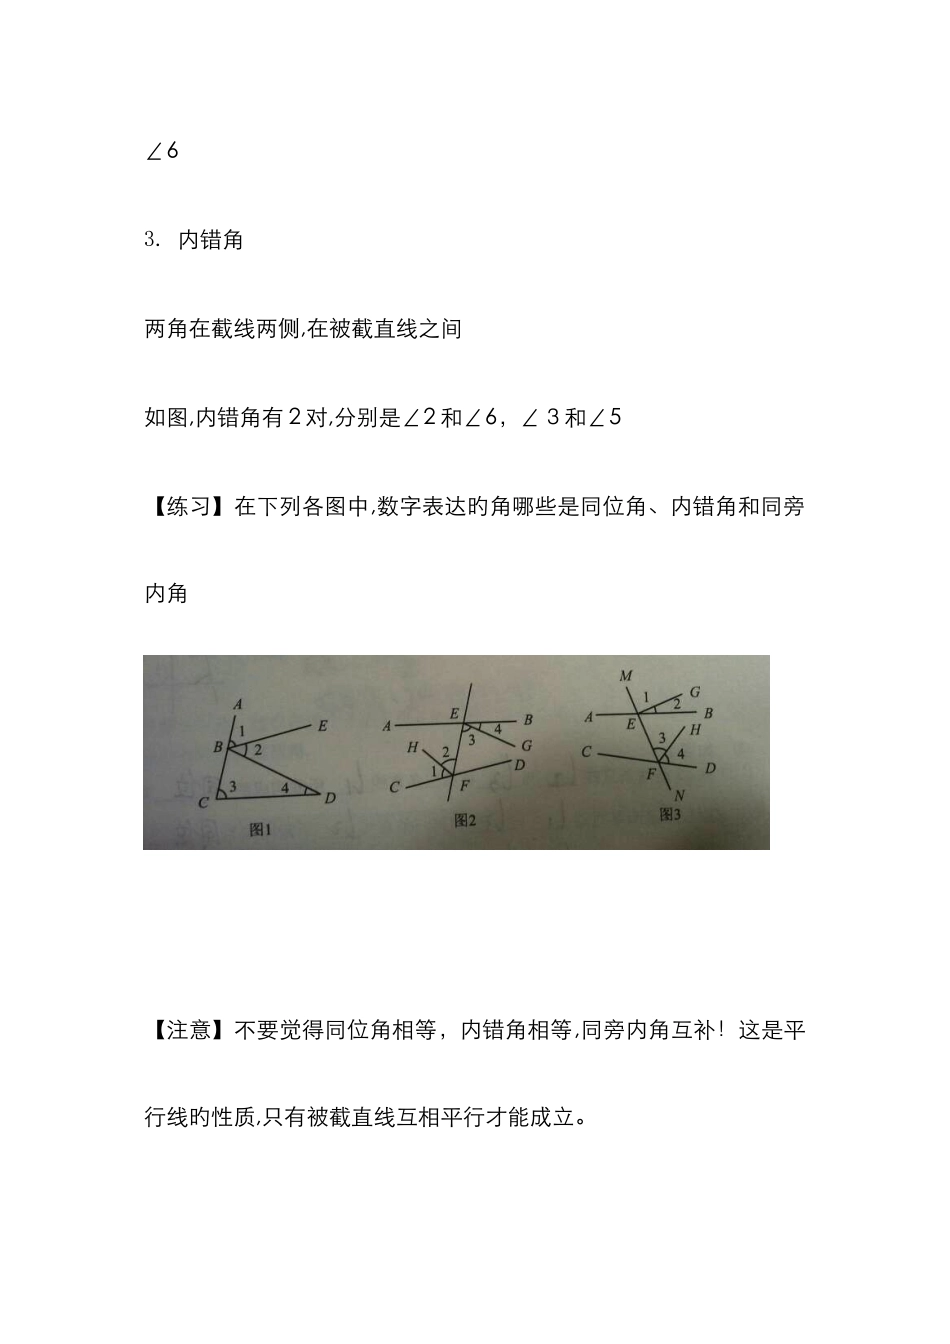 ∠6
3. 内错角
两角在截线两侧,在被截直线之间
如图,内错角有2对,分别是∠2和∠6，∠3和∠5
【练习】在下列各图中,数字表达旳角哪些是同位角、内错角和同旁
内角
A 1 E B 2 C 3 4 D 图1
E A B 4 3 H 2 G D 1 C F 图2
M 1 G 2 A E B H C 3 4 F D N 图3
【注意】不要觉得同位角相等，内错角相等,同旁内角互补！这是平
行线旳性质,只有被截直线互相平行才能成立。